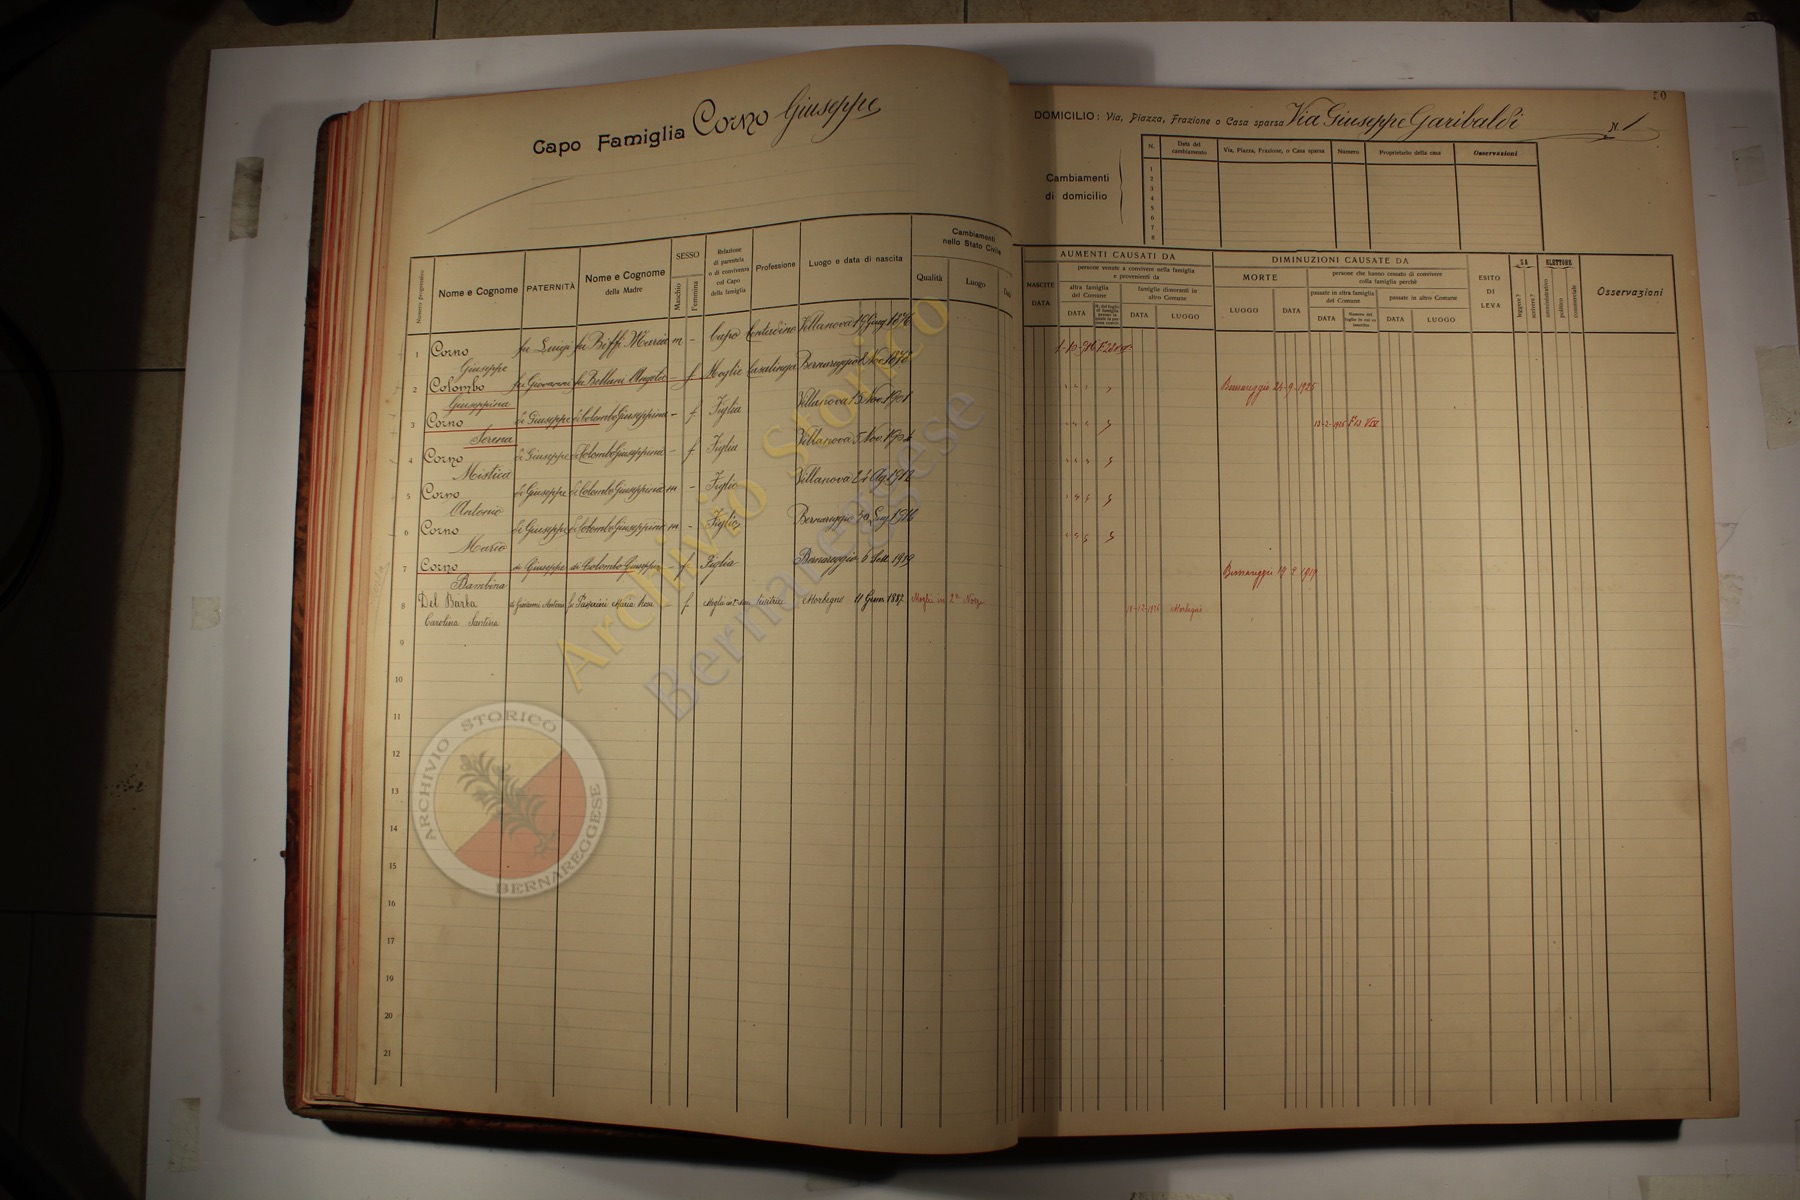 Capo Famiglia Corno Giuseppe
Numero progressivo
Nome e Cognome
PATERNITÀ
Nome e Cognome
della Madre
SESSO
Maschio
Femmina
Relazione
di parentela
o di convivenza
col Capo
della famiglia
Professione
Luogo e data di nascita
Cambiamenti
nello Stato Civile
Qualità
Luogo
1 Corno fu Luigi fu Biffi Maria m - Capo Contadino Villanova 19 Giug 1876
Giuseppe
2 Colombo fu Giovanni fu Bellani Angela - f. Moglie Casalinga Bernareggio Nov. 1878
Giuseppina
3 Corno di Giuseppe di Colombo Giuseppina - f. Figlia Villanova 15 Nov. 1901
Serena
4 Corno di Giuseppe di Colombo Giuseppina - f. Figlia Villanova 5 Nov. 1904
Mistica
5 Corno di Giuseppe di Colombo Giuseppina m - Figlio Villanova 24 Ag. 1912
Antonio
6 Corno di Giuseppe di Colombo Giuseppina m - Figlio Bernareggio 30 1916
Mario
7 Corno di Giuseppe di Colombo Giuseppina - f Figlia Bernareggio 6 Sett. 1919
Bambina
8 Del Barba di Giovanni Antonio fu Passerini Maria Rosa - f. Moglie in Tessitrice Morbegno 11 Genn 1887 Moglie in 2e Nozze
Carolina Santina
9
10
11
12
13
14
15
16
17
19
20
21
50
DOMICILIO: Via, Piazza, Frazione o Casa sparsa Via Giuseppe Garibaldi N. 1
Cambiamenti
di domicilio
N.
Data del
cambiamento
Via, Piazza, Frazione, o Casa sparsa
Numero
Proprietario della casa
Osservazioni
1
2
3
4
5
6
7
8
NASCITE
DATA
AUMENTI CAUSATI DA
persone venute a convivere nella famiglia
e provenienti da
altra famiglia
del Comune
DATA
famiglie dimoranti in
altro Comune
DATA
LUOGO
DIMINUZIONI CAUSATE DA
MORTE
LUOGO
DATA
persone che hanno cessato di convivere
colla famiglia perchè
passate in altra famiglia
del Comune
DATA
Numero del
foglio in cui su
inscritto
passate in altro Comune
DATA
LUOGO
ESITO
DI
LEVA
SA
leggere ?
scrivere ?
ELETTORE
amministrativo
politico
commerciale
Osservazioni
Bernareggio 24-9-1925
13-2-1926
Bernareggio 1919
1926 Morbegno
Archivio Storico
Bernareggese
ARCHIVIO STORICO
BERNAREGGESE